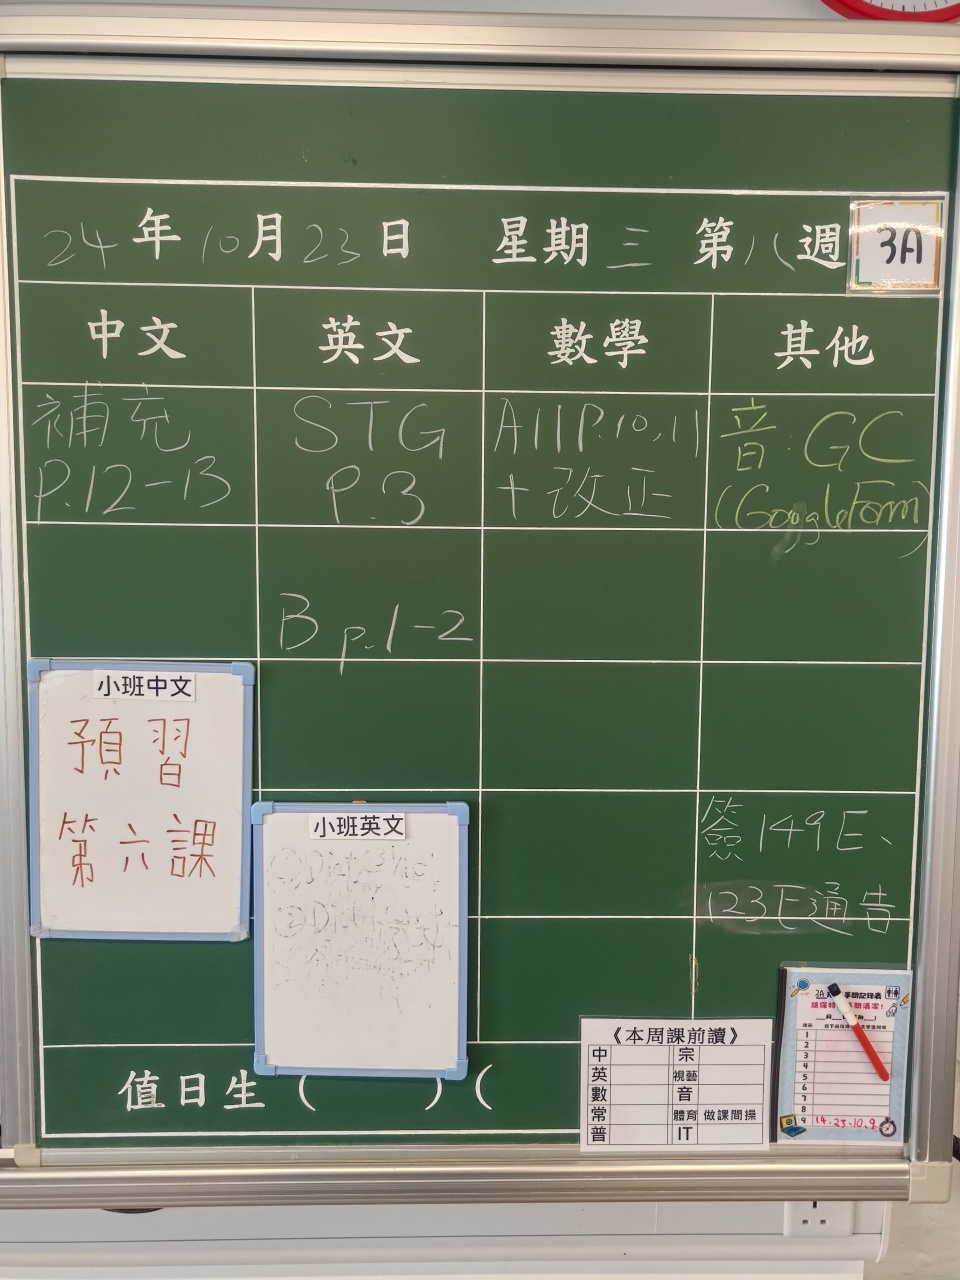 24年10月23日 星期三 第八週 3A
中文 英文 數學 其他
補充 STG A11P.10,11 音:GC
P.12-13 P.3 +改正 (GoogleForm)
B p.1-2
小班中文
預習
第六課
小班英文
簽149E、
123E通告
值日生( )(
《本周課前讀》
中 宗
英 視藝
數 音
常 體育 做課間操
普 IT
3A
1
2
3
4
5
6
7
8
9 14.25.10.9